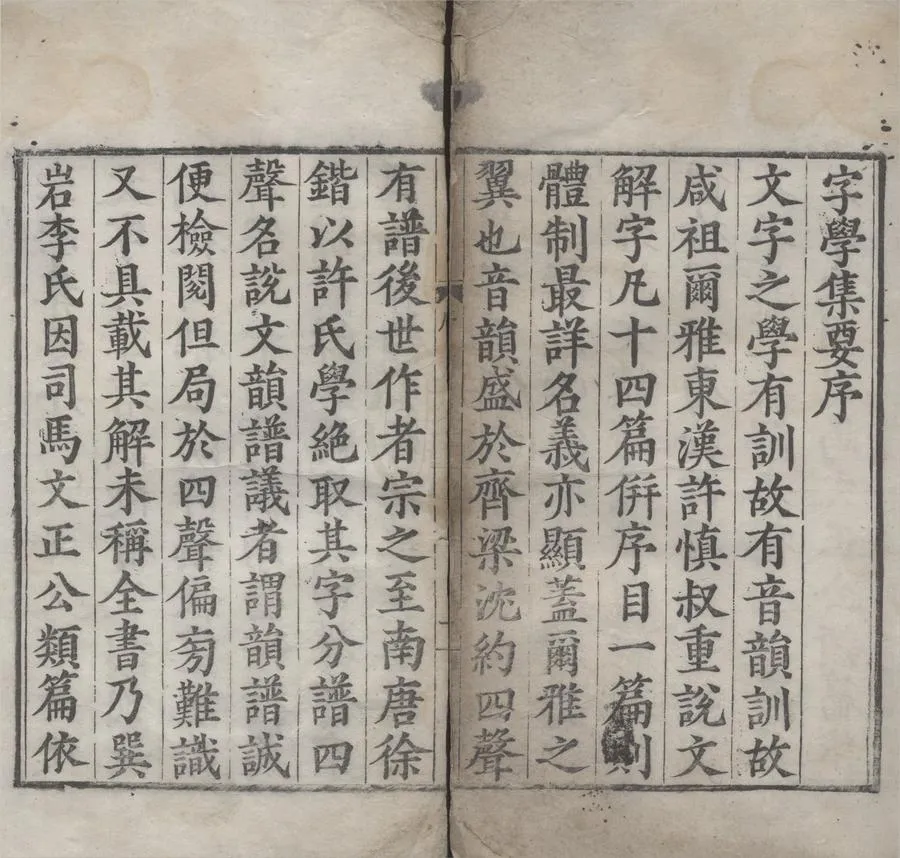 字學集要序
文字之學有訓故有音韻訓故
咸祖爾雅東漢許慎叔重說文
解字凡十四篇併序目一篇則
體制最詳名義亦顯蓋爾雅之
翼也音韻盛於齊梁沈約四聲
有譜後世作者宗之至南唐徐
鍇以許氏學絕取其字分譜四
聲名說文韻譜議者謂韻譜誠
便檢閱但局於四聲偏旁難識
又不具載其解未稱全書乃巽
岩李氏因司馬文正公類篇依